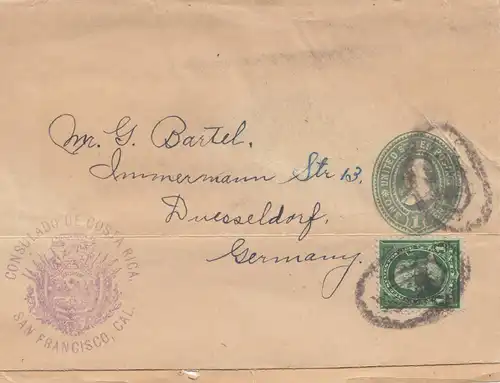 Mr. G. Bartel.
Immermann Str 13.
Duesseldorf.
Germany.
CONSULADO DE COSTA RICA
SAN FRANCISCO, CAL.
UNITED
1